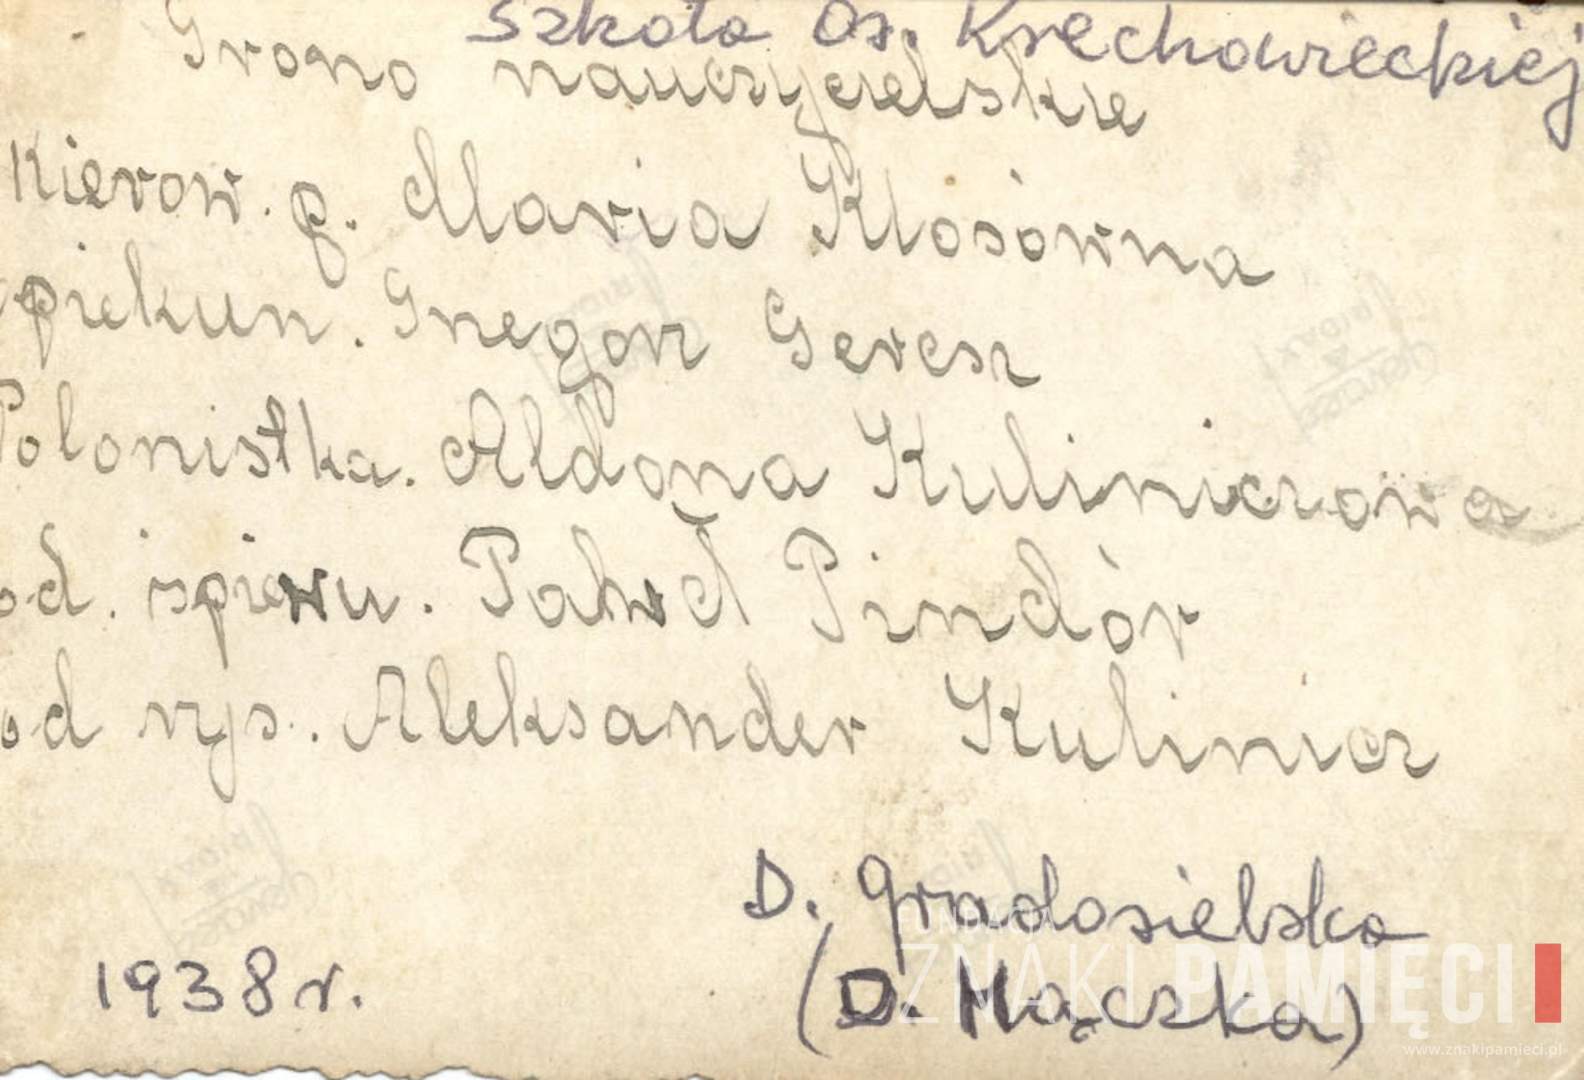 Szkoła Os. Krechowieckiej
Grono nauczycielskie
Kierow. p. Maria Kłosówna
opiekun. Gregorz Geresz
Polonistka. Aldona Kuliniczowa
od. śpiewu. Paweł Pindór
od rys. Aleksander Kulinicz
D. Gradosielska
1938 r. (D. Mączka)
FUNDACJA
ZNAKI PAMIĘCI
www.znakipamieci.pl